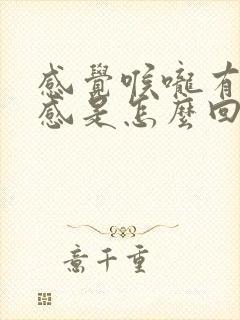 感覺喉嚨有
感是怎麼回
意千重